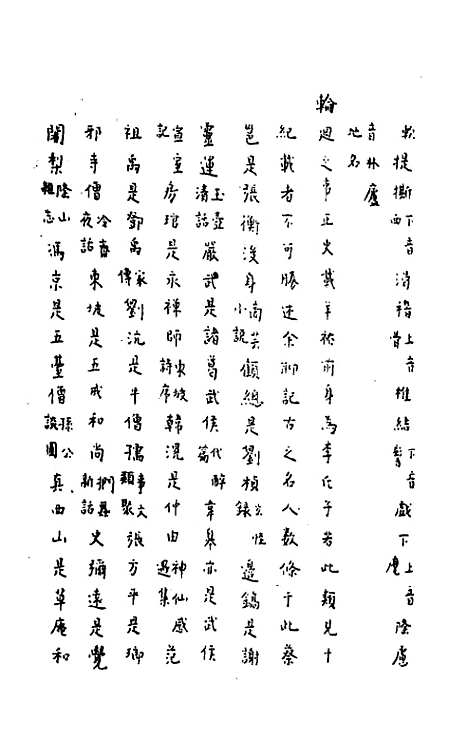 提撕下音西消上音椎結下音髻戲下音麾上音隆慮
音林廬
地名
輪廻之事正史載羊祜前身為李氏子若此類見十
紀載者不可勝述余聊記古之名人數條于此蔡
邕是張衡後身商芸小說顧總是劉楨玄怪錄邊鎬是謝
靈運玉壺清話嚴武是諸葛武侯代醉篇韋皋亦是武侯
宣室記房琯是永禪師東坡詩序韓滉是仲由神仙感遇集范
祖禹是鄧禹家傳劉沆是牛僧孺事文類聚張方平是瑯
邪寺僧冷齋夜話東坡是五戒和尚捫蝨新話史彌遠是覺
闍梨隆山雜志馮京是五臺僧孫公談圃真西山是草庵和